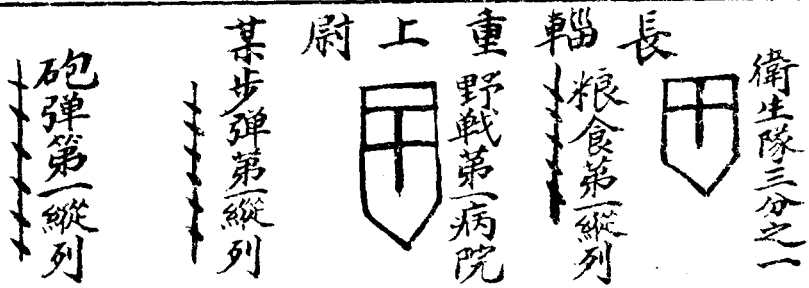 長輜重上尉
衛生隊三分之一
粮食第一縱列
野戰第一病院
某步弹第一縱列
砲弹第一縱列